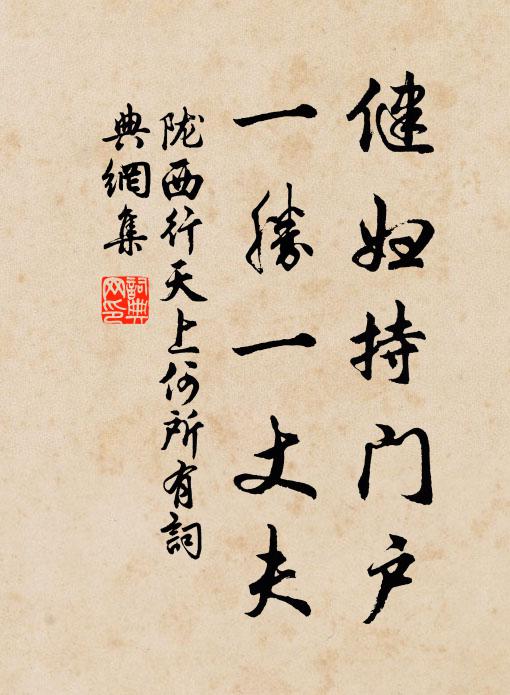 健妇持门户
一勝一丈夫
陇西行天上何所有詞
典網集
詞典
网印